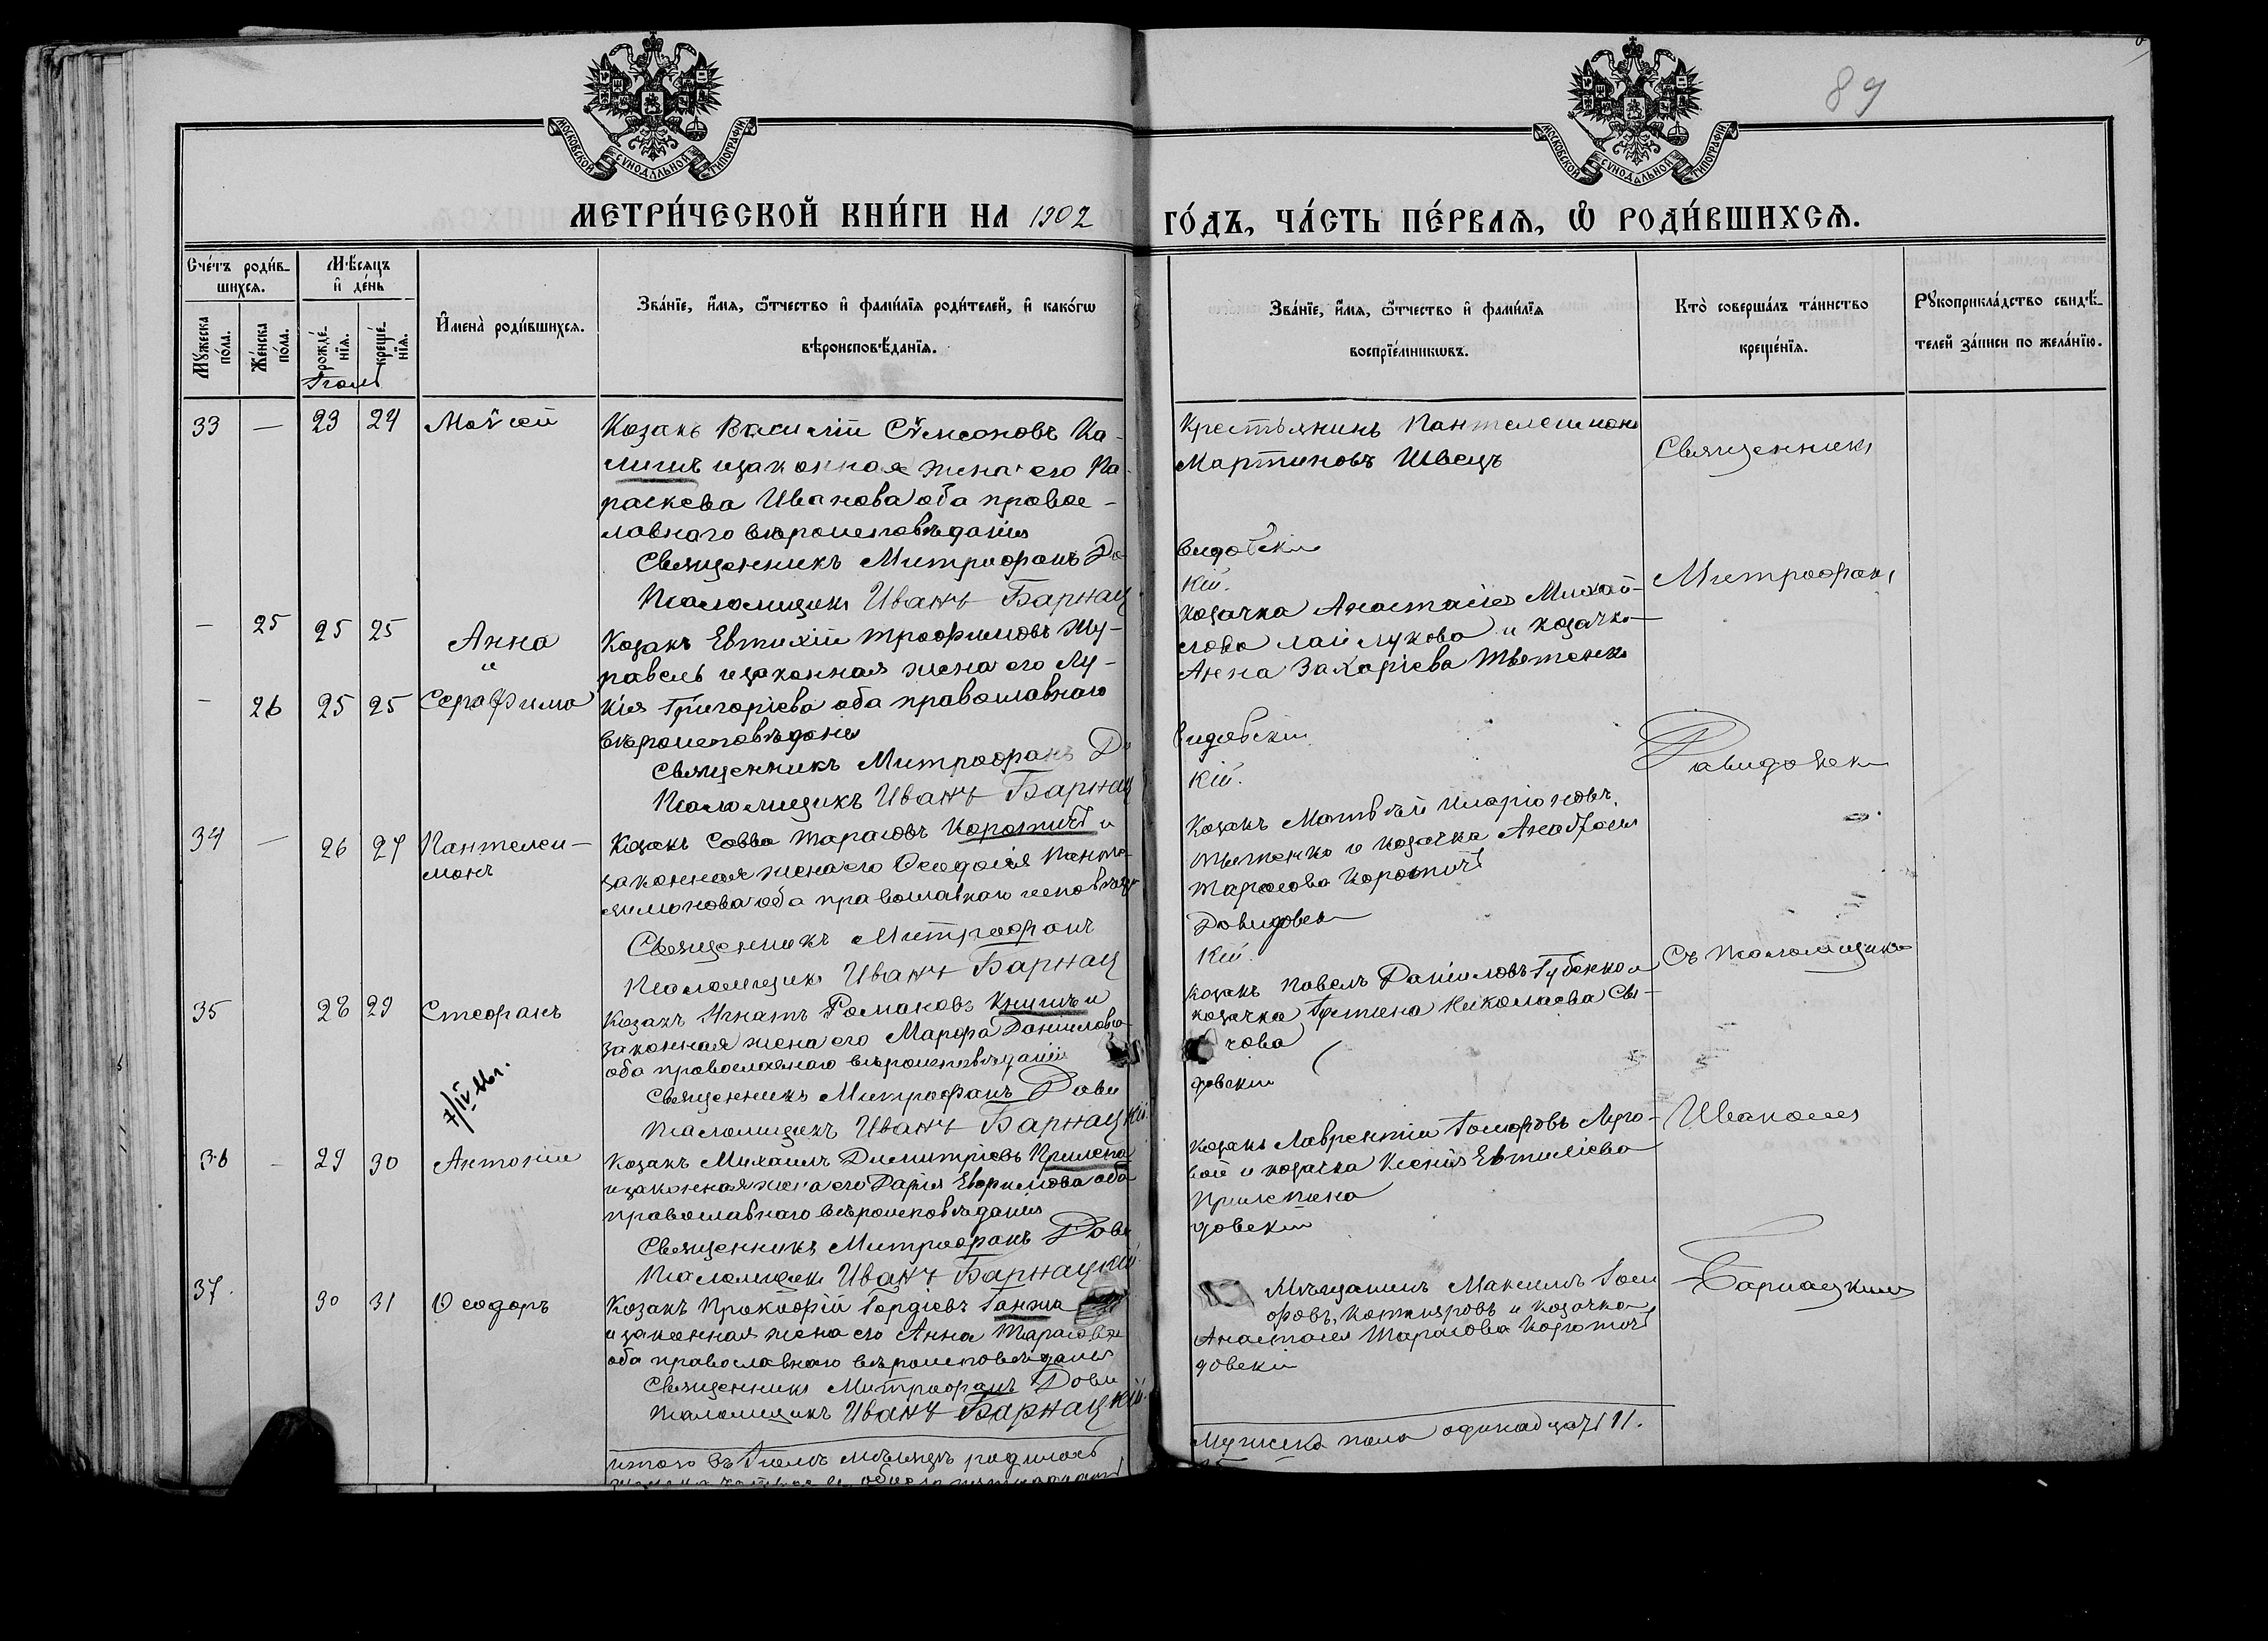 89
МОСКОВСКОЙ СѴНОДАЛЬНОЙ ТИПОГРАФІИ
МОСКОВСКОЙ СѴНОДАЛЬНОЙ ТИПОГРАФІИ
МЕТРИ́ЧЕСКОЙ КНИ́ГИ НА 1902 ГО́ДЪ, ЧА́СТЬ ПЕ́РВАЯ, Ѡ РОДИ́ВШИХСЯ.
Сче́тъ роди́в-
шихся.
Мѣ́сяцъ
и҆ де́нь
Мꙋ́жеска
по́ла.
Же́нска
по́ла.
рожде́-
нїя.
креще́-
нїя.
И҆мена̀ роди́вшихся.
Зва́нїе, и҆́мя, ѻ҆́тчество и҆ фами́лїя роди́телей, и҆ како́гѡ
вѣроисповѣ́данїя.
Зва́нїе, и҆́мя, ѻ҆́тчество и҆ фами́лїя
воспрїе́мникѡвъ.
Кто̀ соверша́лъ та́инство
креще́нїя.
Рꙋкоприкла́дство свидѣ́-
телей за́писи по жела́нїю.
Іюль
33 — 23 24 Моѵсей
Козакъ Василій Сѵмеоновъ Ка-
лишъ и законная жена его Па-
раскева Иванова оба правос-
лавнаго вѣроисповѣданія
Священникъ Митрофанъ Да-
видовскій
Псаломщикъ Иванъ Барнац
кій.
Крестьянинъ Пантелеимонъ
Мартиновъ Швецъ
Священникъ
— 25 25 25 Анна
и
— 26 25 25 Серафима
Козакъ Евтихій Трофимовъ Жу-
равель и законная жена его Лу-
кія Григоріева оба православнаго
вѣроисповѣданія
Священникъ Митрофанъ Да
видовскій
Псаломщикъ Иванъ Барнац
кій.
Козачка Анастасія Михай-
лова и козачка
Анна Захаріева
Митрофанъ
34 — 26 27 Пантелеи-
монъ
Козакъ Савва Тарасовъ Коротичъ и
законная жена его Ѳеодосія Панте-
лимонова оба православнаго исповѣд
Священникъ Митрофанъ
Давидовск
Псаломщикъ Иванъ Барнац
кій.
Козакъ Матвѣй Иларіоновъ
и козачка
Тарасова Коротичъ
Давидовск
35 28 29 Стефанъ
Козакъ Игнатъ Романовъ Книшъ и
законная жена его Марфа Даніилова
оба православнаго вѣроисповѣданія
Священникъ Митрофанъ Дави
довскій
Псаломщикъ Иванъ Барнацкій.
Козакъ Павелъ Даніиловъ Губенко и
козачка Николаева Сы-
чова
Съ Псаломщикомъ
7/IV 26г.
36 — 29 30 Антоній
Козакъ Михаилъ Димитріевъ Прилепа
и законная жена его Дарія Евфимова оба
православнаго вѣроисповѣданія
Священникъ Митрофанъ Дави
довскій
Псаломщикъ Иванъ Барнацкій.
Козакъ Лаврентій Іосифовъ Луго-
вой и козачка Ксенія Евтихіева
Прилепина
Иваномъ
37. 30 31 Ѳеодоръ
Козакъ Прокофій Гордіевъ Ганжа
и законная жена его Анна Тарасова
оба православнаго вѣроисповѣданія
Священникъ Митрофанъ Дави
довскій
Псаломщикъ Иванъ Барнацкій.
Мѣщанинъ Максимъ Іоси
фовъ и козачка
Анастасія Тарасова Коротичъ
Барнацкимъ
Итого въ Іюлѣ мѣсяцѣ родилось
Мужеска пола одинадцать 11.